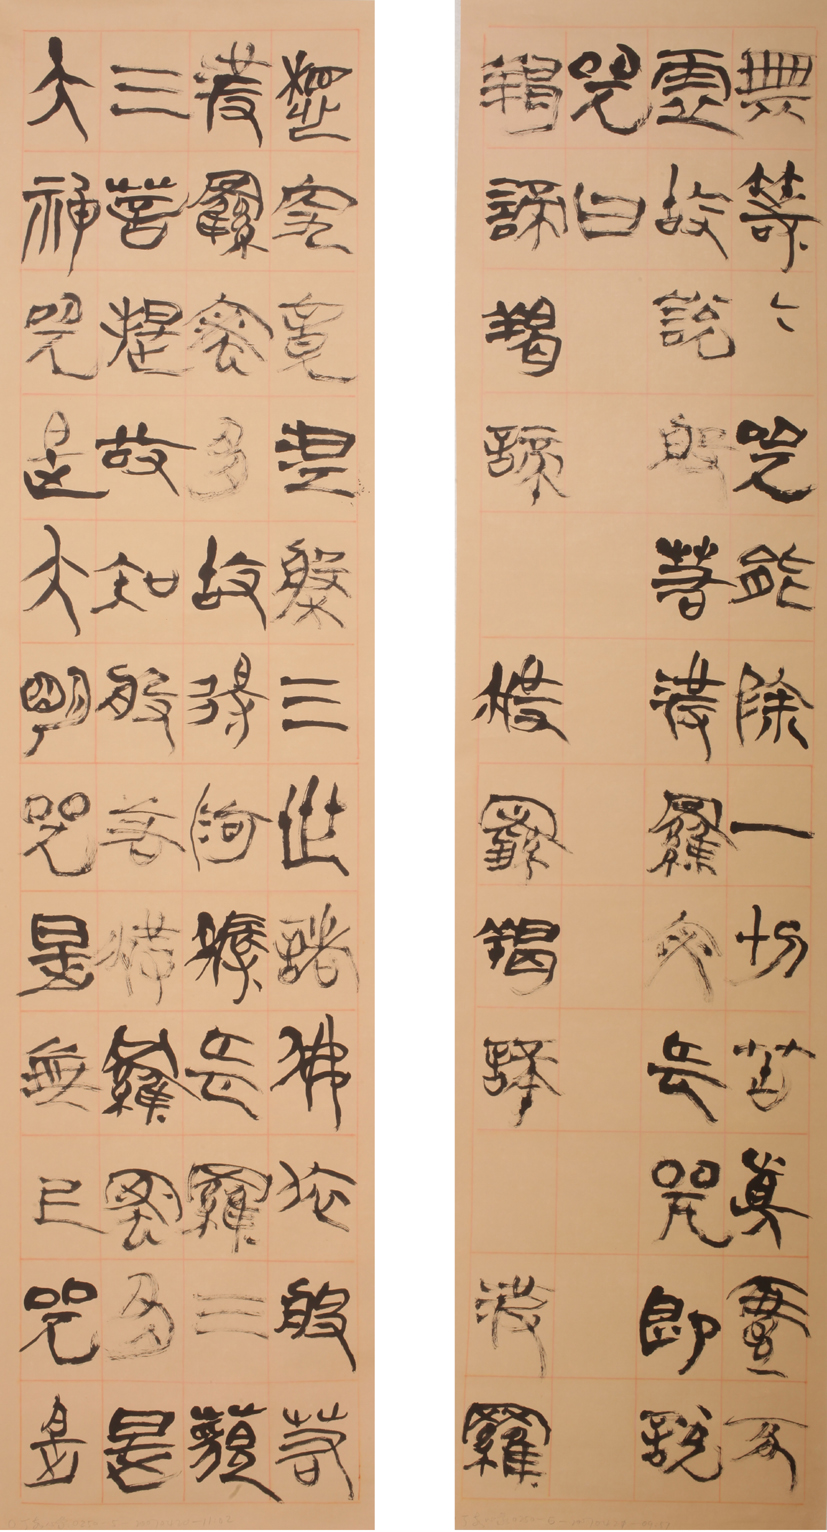 想究竟涅槃三世諸佛依般若
波羅蜜多故得阿耨多羅三藐
三菩提故知般若波羅蜜多是
大神咒是大明咒是無上咒是
無等々咒能除一切苦真實不
虛故說般若波羅蜜多咒即說
咒曰
羯諦羯諦 波羅羯諦 波羅